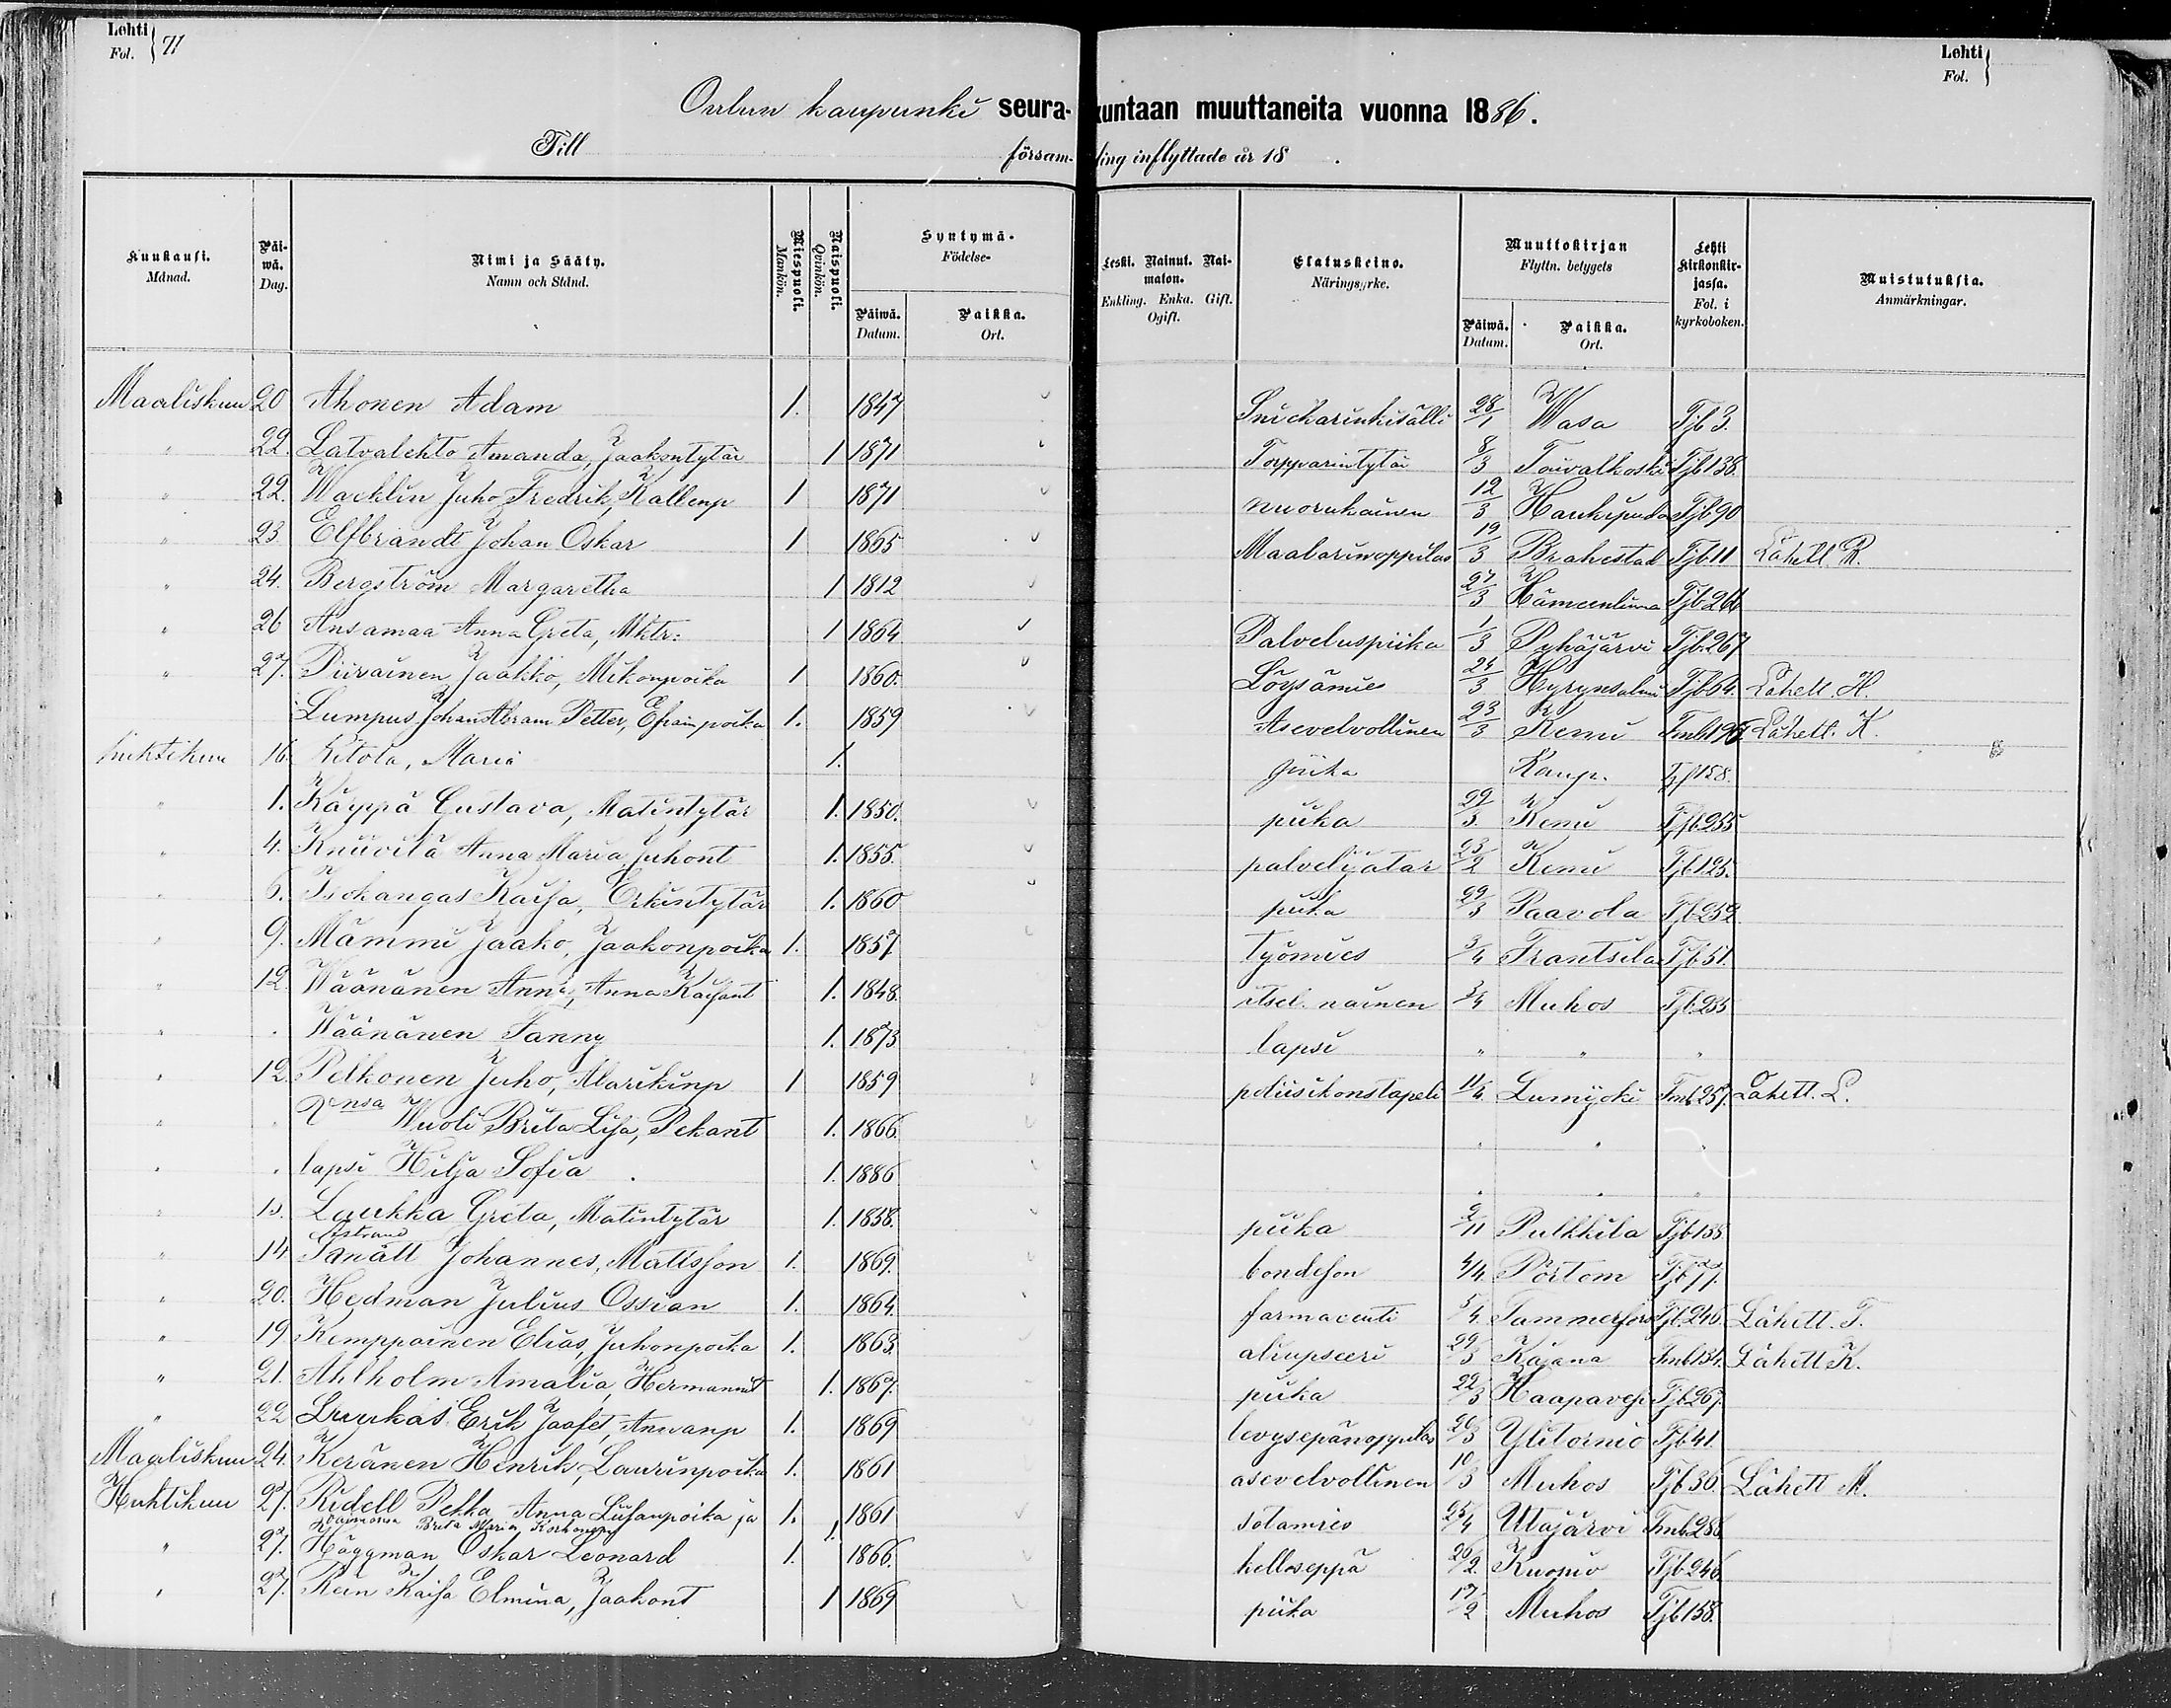 Lehti
Fol. } 71
Lehti
Fol. }
Oulun kaupunki seura-kuntaan muuttaneita vuonna 1886.
Till försam-ling inflyttade år 18 .
Kuukausi. Månad. Päi-wä. Dag. Nimi ja Sääty. Namn och Stånd. Miespuoli. Mankön. Naispuoli. Qvinkön. Syntymä- Födelse- Päiwä. Datum. Paikka. Ort. Leski. Nainut. Nai-maton. Enkling. Enka. Gift. Ogift. Elatuskeino. Näringsyrke. Muuttokirjan Flyttn. betygets Päiwä. Datum. Paikka. Ort. Lehti kirkonkir-jassa. Fol. i kyrkoboken. Muistutuksia. Anmärkningar.
Maaliskuu 20 Ahonen Adam 1. 1847 Snickarinkisälli 28/1 Wasa Tjb 3.
" 22. Latvalehto Amanda, Jaakontytär 1 1871 Torpparintytär 8/3 Taivalkoski Tjb 138.
" 22. Wacklin Juho Fredrik, Kallenp 1 1871 nuorukainen 12/3 Haukipudas Tjb 90
" 23 Elfbrandt Johan Oskar 1 1865 Maalarinoppilas 19/3 Brahestad Tjb 11 Lähett R.
" 24. Bergström Margaretha 1 1812 27/3 Hämeenlinna Tjb 266
" 26 Ansamaa Anna Greta, Mktr: 1 1864 Palveluspiika 1/3 Pyhäjärvi Tjb 267
" 27. Piirainen Jaakko, Mikonpoika 1 1860. Löysämies 24/3 Hyrynsalmi Tjb 64. Lähett. H.
Lumpus Johan Abram Petter, Efraimpoika 1. 1859 Asevelvollinen 23/3 Kemi Tmb 196 Lähett. K.
huhtikuu 16. Kitola, Maria 1. piika Kaup. Tjb 158.
" 1. Käyppä Gustava, Matintytär 1. 1850. piika 29/3. Kemi Tjb 255
" 4. Kniivilä Anna Maria Juhont 1. 1855. palvelijatar 23/2 Kemi Tjb 125.
" 6. Isokangas Kaisa, Erkintytär 1. 1860 piika 29/3 Paavola Tjb 259.
" 9. Mämmi Jaako, Jaakonpoika 1. 1857 työmies 3/4 Frantsila Tjb 51.
" 12. Wäänänen Anna, Anna Kaisant 1. 1848. itsel. nainen 3/4 Muhos Tjb 235
" . Wäänänen Fanny 1. 1873 lapsi " " "
" 12. Pelkonen Juho, Alarikinp 1 1859 poliisikonstapeli 11/4. Lumijoki Tmb 257. Lähett. L.
" . Vnsa Wuoli Brita Lisa, Pekant 1. 1866. " " "
" . lapsi Hilja Sofia 1. 1886 " " "
" 13. Laukka Greta, Matintytär 1. 1858. piika 2/11 Pulkkila Tjb 133.
" 14 Johannes, Matisson 1. 1869. bondeson 4/4. Pörtom Tjb 77.
" 20. Hedman Julius Ossian 1. 1864. farmaceuti 5/4. Tammerfors Tjb 246. Lähett. T.
" 19 Kemppainen Elias, Juhonpoika 1. 1863. aliupseeri 29/3 Kajana Tmb 134. Lähett K.
" 21. Ahlholm Amalia, Hermannint 1. 1867. piika 22/3 Haapavesi Tjb 267.
" 22 Luukas Erik Jaafet, Annanp 1. 1869 levysepänoppilas 26/3 Ylitornio Tjb 41.
Maaliskuu 24. Keränen Henrik, Laurinpoika 1. 1861 asevelvollinen 10/3 Muhos Tjb 36. Lähett M.
Huhtikuu 27. Ridell Pekka Anna Liisanpoika ja 1. 1861 sotamies 25/4 Utajärvi Tmb 286
vaimonsa Brita Maria Korhonen 1.
" 27. Häggman Oskar Leonard 1. 1866. kelloseppä 26/2. Kuopio Tjb 246.
" 27. Rein Kaisa Elmina, Jaakont 1 1869 piika 17/2 Muhos Tjb 158.